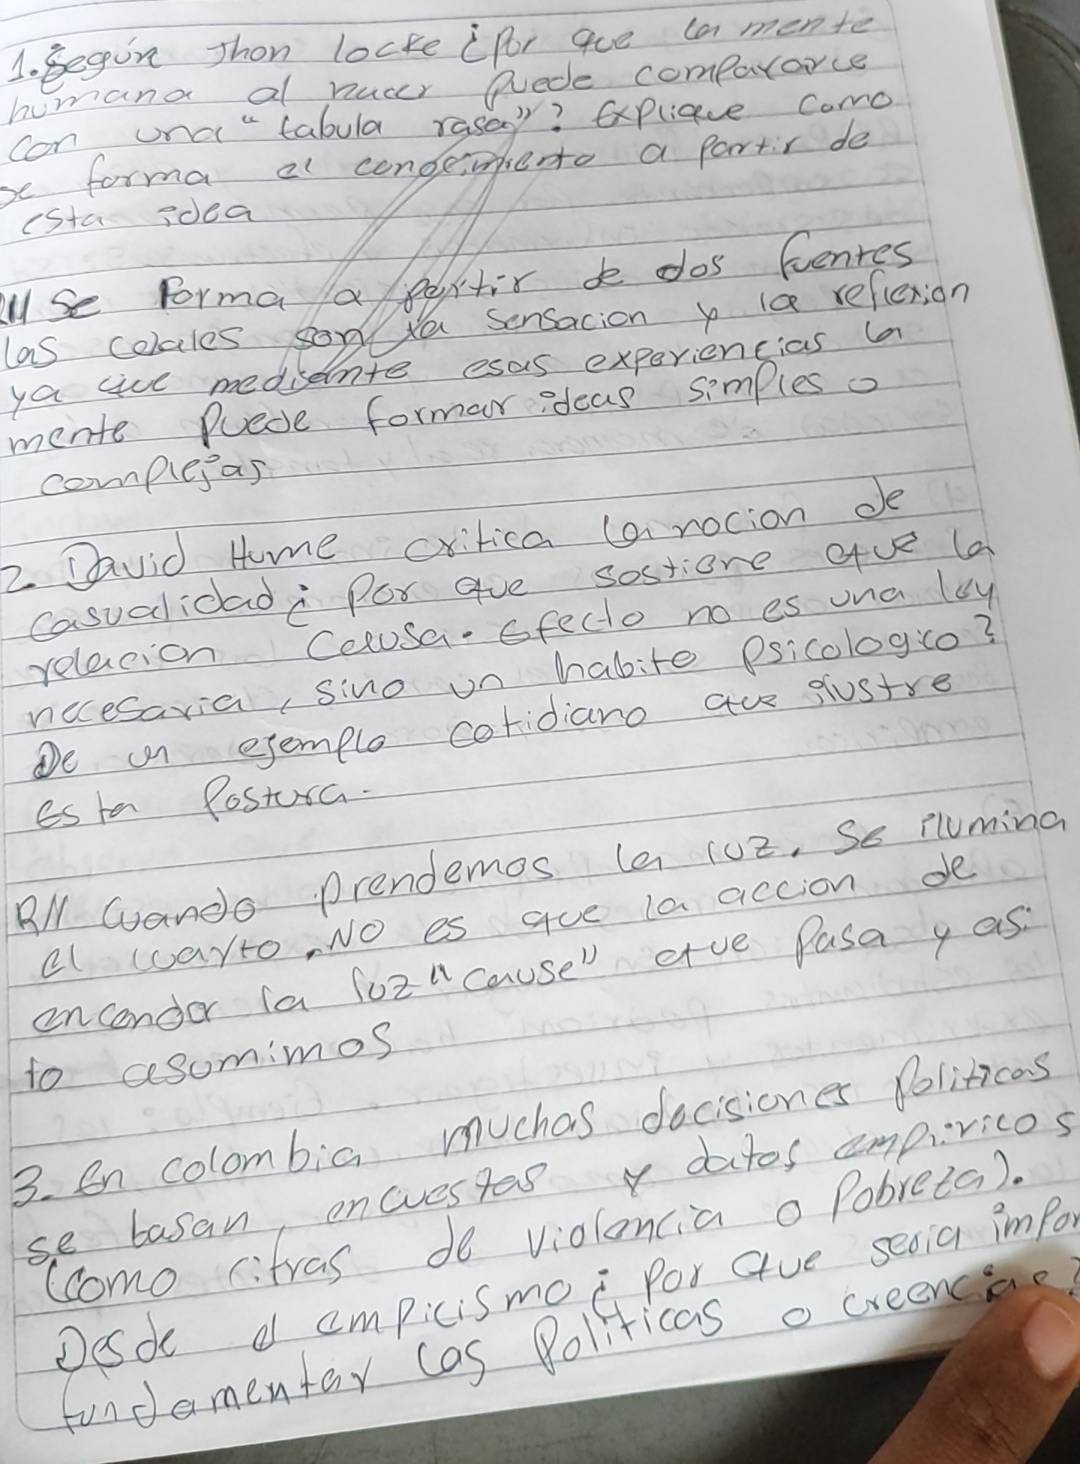 1. Según Jhon locke ¿por que la mente
humana al nacer puede compararce
con una "tabula rasa"? Explique como
se forma el conocimiento a partir de
esta idea
R// Se forma a partir de dos fuentes
las cuales son la sensacion y la reflexion
ya que mediante esas experiencias la
mente puede formar ideas simples o
complejas
2. David Hume critica la nocion de
casualidad ¿ Por que sostiene que la
relacion Causa-efecto no es una ley
necesaria, sino un habito psicologico?
De un ejemplo cotidiano que ilustre
esta Postura.
R// Cuando prendemos la luz, se ilumina
el cuarto, No es que la accion de
encender la luz "cause" que pasa y asi
lo asumimos
3. En colombia muchas decisiones politicas
se basan, encuestas y datos empiricos
(como cifras de violencia o Pobreza).
Desde el empicismo ¿ por que seria impor
fundamentar las Politicas o creencias?